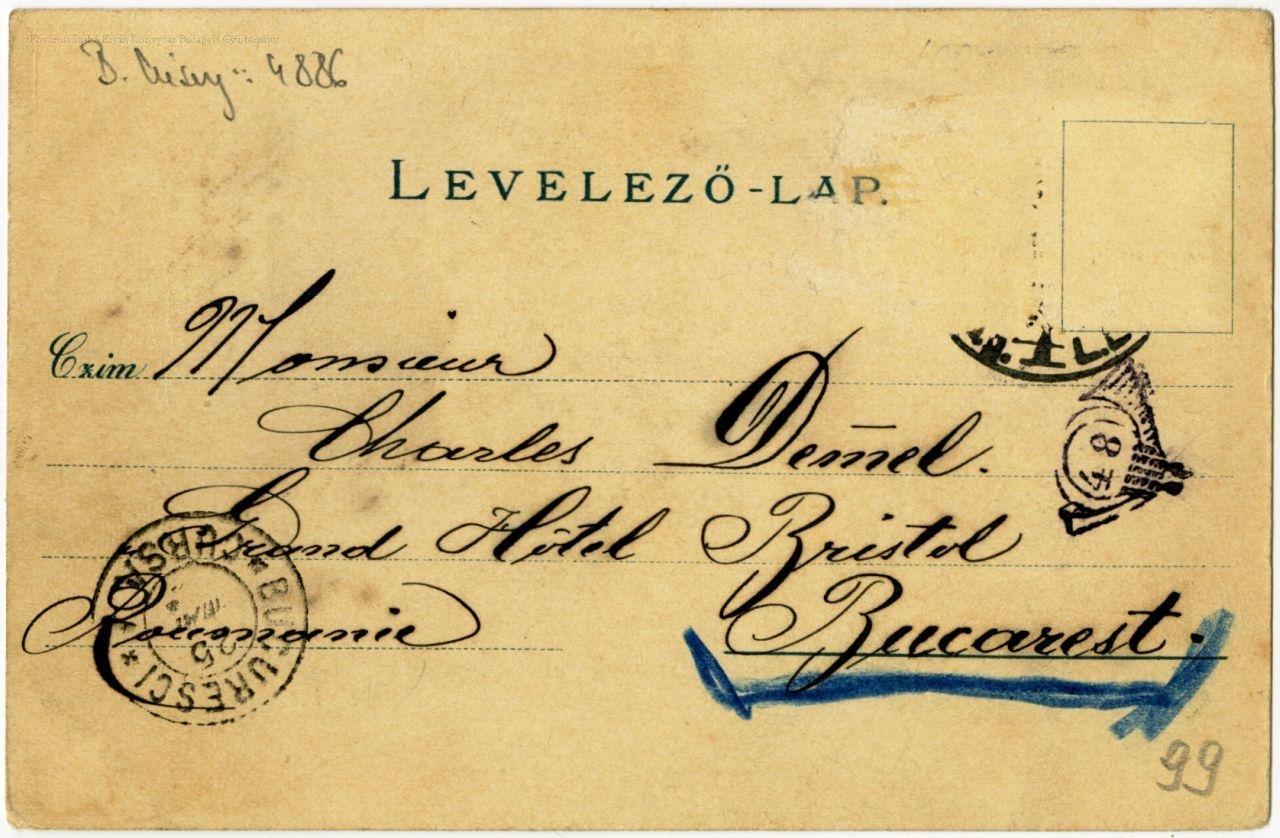 Fővárosi Szabó Ervin Könyvtár Budapest Gyűjtemény
4886
LEVELEZŐ-LAP.
Czim Monsieur
Charles Dem̅el.
Grand Hôtel Bristol
Roumanie Bucarest.
BUCURESCI
25
8
99